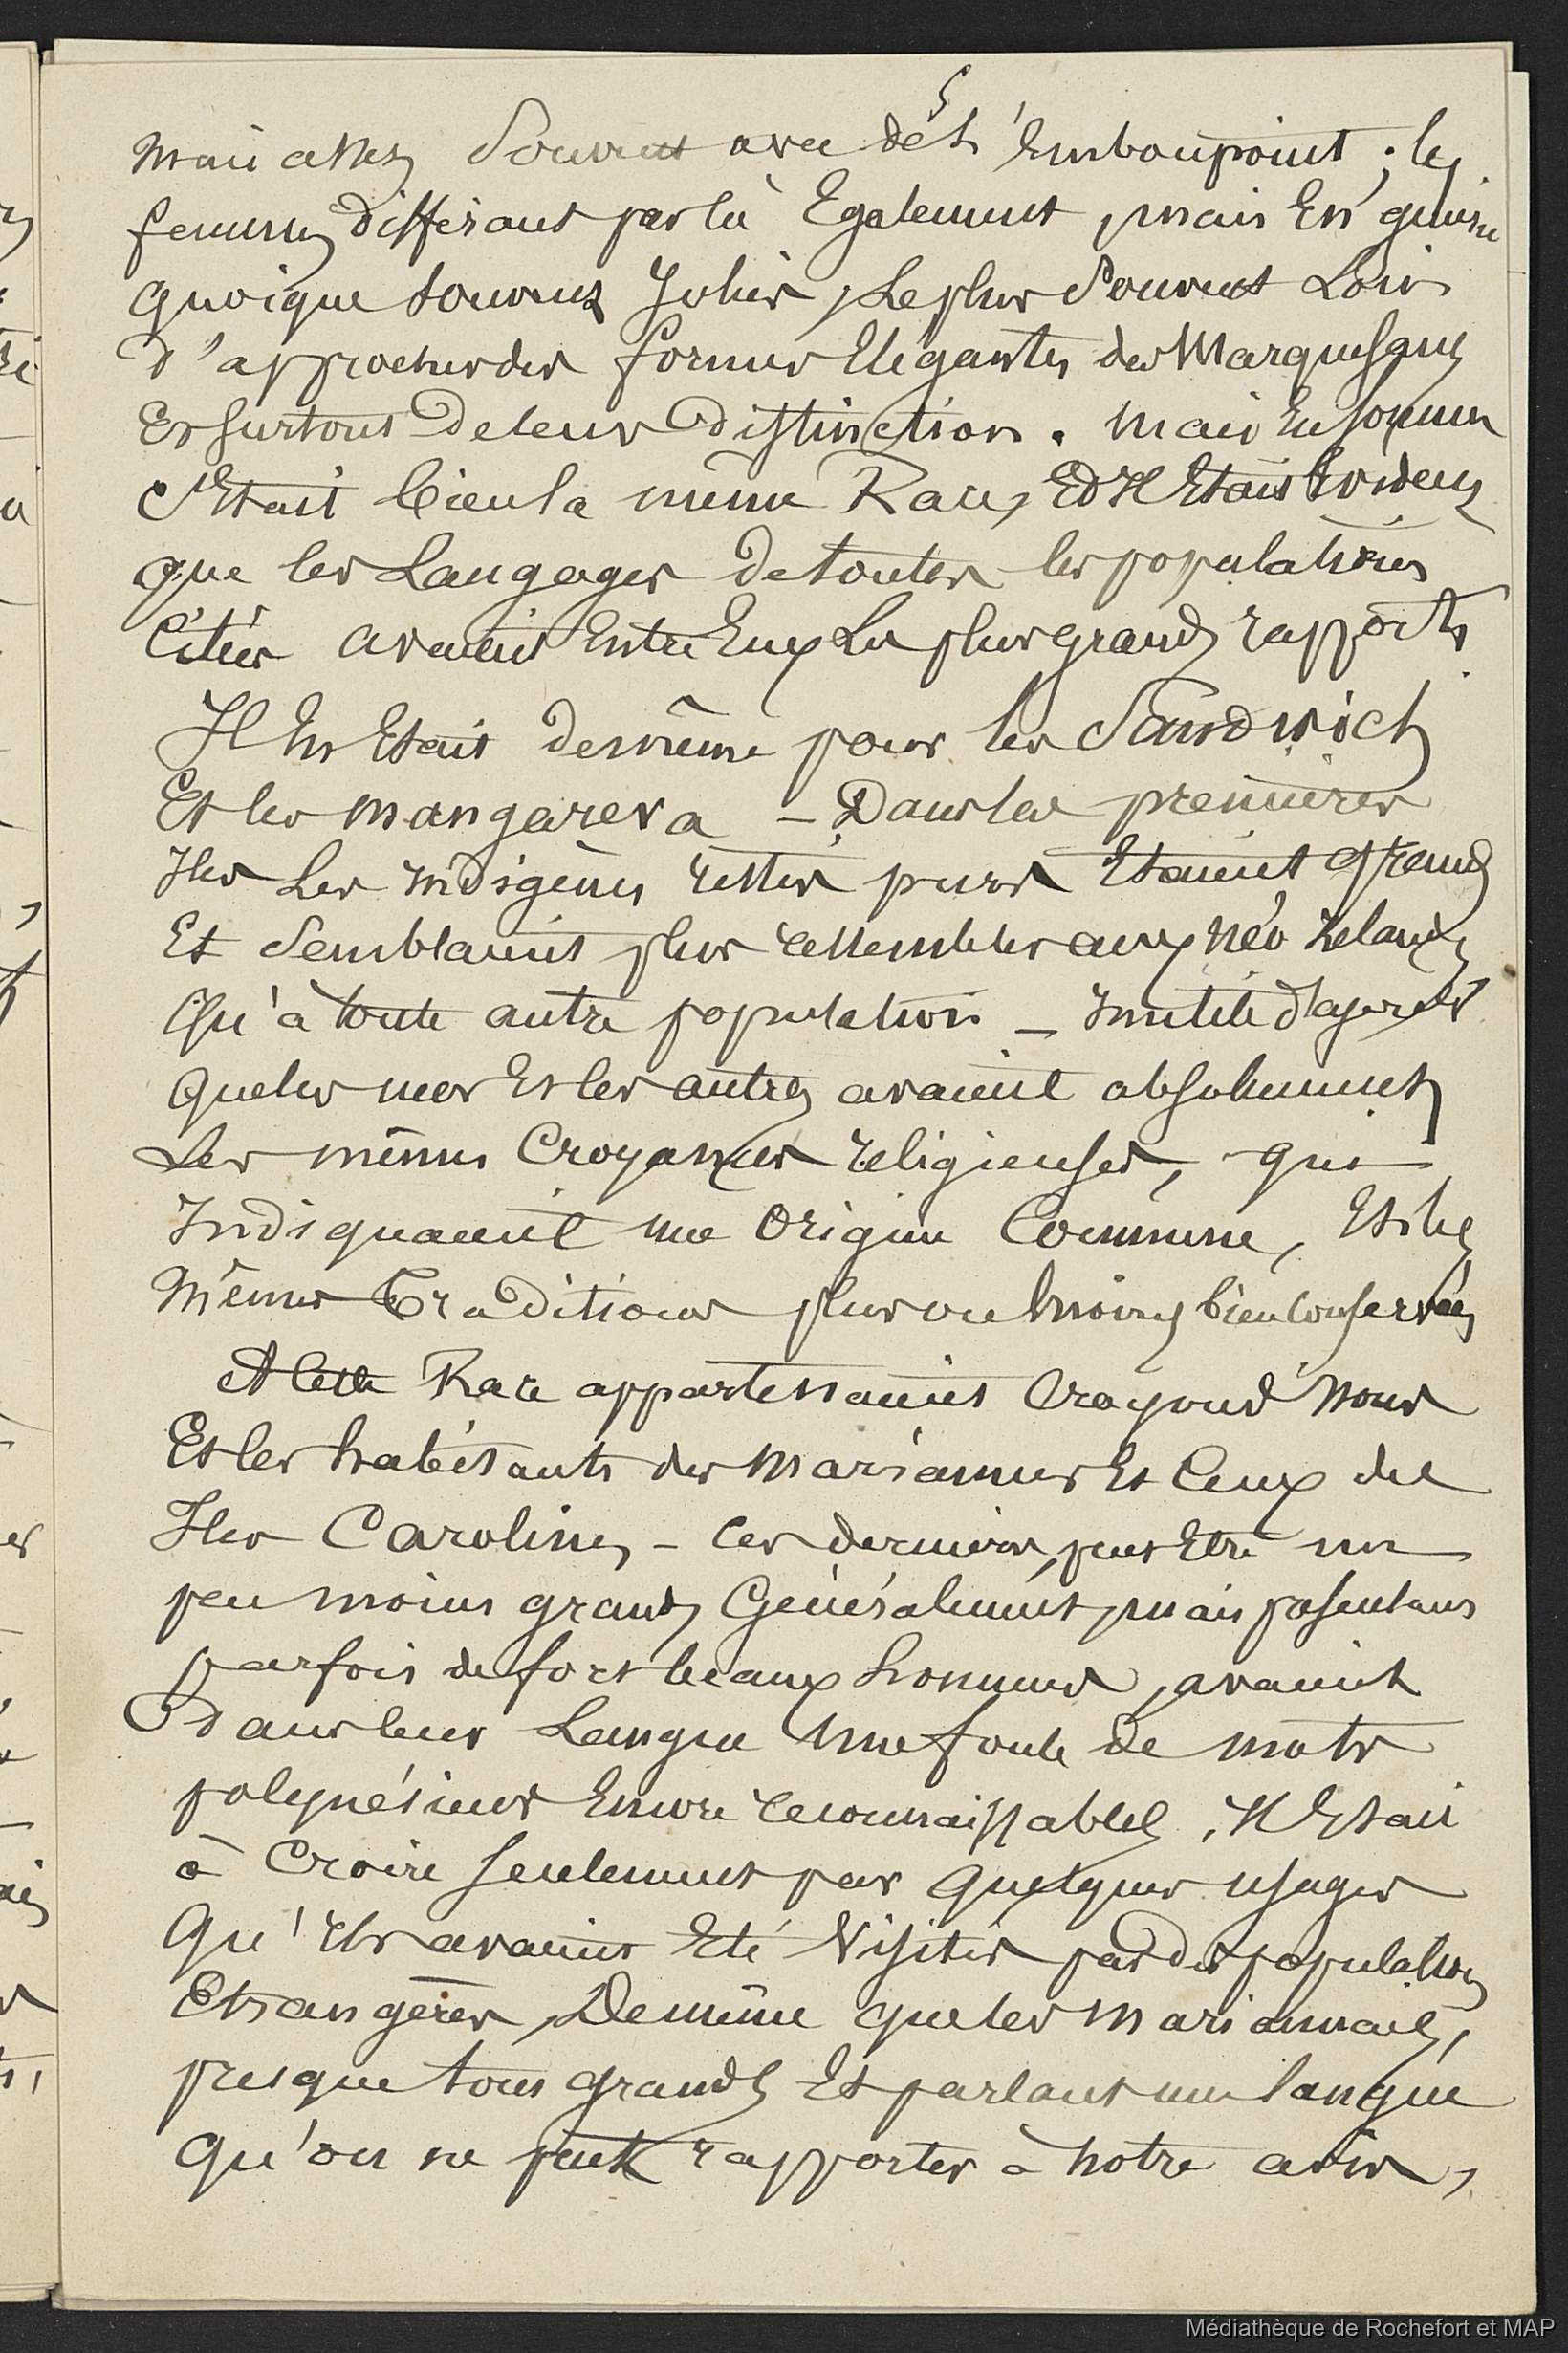 mais assez souvent avec de l'Embonpoint ; les
femmes différant par là Egalement, mais En général
quoique souvent Jolies, Le plus Souvent Loin
d'approcher des formes Elégantes des Marquesans
Et surtout De leur Distinction. Mais En somme
C'Etait bien la même Race, Et Il Etait Evident
que les Langages De toutes les populations
Citées avaient Entre Eux Les plus grands rapports.
Il En Etait de même pour les Sandwich
Et les Mangareva – Dans les premières
Iles Les Indigènes restés purs Etaient grands
Et Semblaient plus ressembler aux Néo Zelandais
Qu'à toute autre population – Inutile d'ajouter
Que les uns Et les autres avaient absolument
Les mêmes Croyances religieuses, qui
Indiquaient une Origine Commune, Et les
Mêmes Traditions plus ou moins bien conservées
A cette Race appartenaient Croyons nous
Et les habitants des Mariannes Et Ceux des
Iles Carolines – Ces derniers, peut Etre un
peu moins grands Généralement, mais présentant
parfois de fort beaux hommes, avaient
Dans leur Langue Une foule de mots
polynésiens Encore reconnaissables, Il Etait
à Croire seulement par Quelques usages
Qu'Ils avaient Eté Visités par des populations
Etrangères, De même que les Mariannais,
presque tous grands Et parlant une langue
Qu'on ne peut rapporter à notre avis,
Médiathèque de Rochefort et MAP